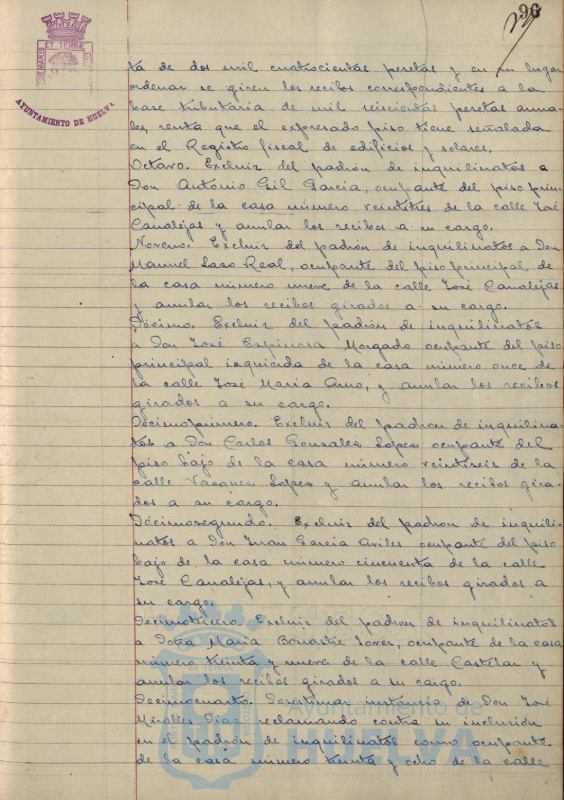 96
PORTUS MARIS ET TERRÆ CUSTODIA
AYUNTAMIENTO DE HUELVA
ta de dos mil cuatrocientas pesetas y en su lugar
ordenar se giren los recibos correspondientes a la
base tributaria de mil seiscientas pesetas anua-
les, renta que el expresado piso tiene señalada
en el Registro fiscal de edificios y solares.
Octavo. Excluir del padrón de inquilinatos a
Don Antonio Gil García, ocupante del piso prin-
cipal de la casa número veintitres de la calle José
Canalejas y anular los recibos a su cargo.
Noveno. Excluir del padrón de inquilinatos a Don
Manuel Laso Real, ocupante del piso principal de
la casa número nueve de la calle José Canalejas
y anular los recibos girados a su cargo.
Décimo. Excluir del padrón de inquilinatos
a Don José Espinosa Morgado ocupante del piso
principal izquierda de la casa número once de
la calle José María Amo, y anular los recibos
girados a su cargo.
Décimoprimero. Excluir del padrón de inquilina-
tos a Don Carlos Gonzalez Lopez ocupante del
piso bajo de la casa número veintiseis de la
calle Vazquez Lopez y anular los recibos gira-
dos a su cargo.
Décimosegundo. Excluir del padrón de inquili-
natos a Don Juan Garcia Aviles ocupante del piso
bajo de la casa número cincuenta de la calle
José Canalejas, y anular los recibos girados a
su cargo.
Decimotercero. Excluir del padrón de inquilinatos
a Doña María, ocupante de la casa
número treinta y nueve de la calle Castelar y
anular los recibos girados a su cargo.
Decimocuarto. Desestimar instancia de Don José
Miralles Diaz reclamando contra su inclusión
en el padrón de inquilinatos como ocupante
de la casa número treinta y ocho de la calle
Ayuntamiento de
HUELVA